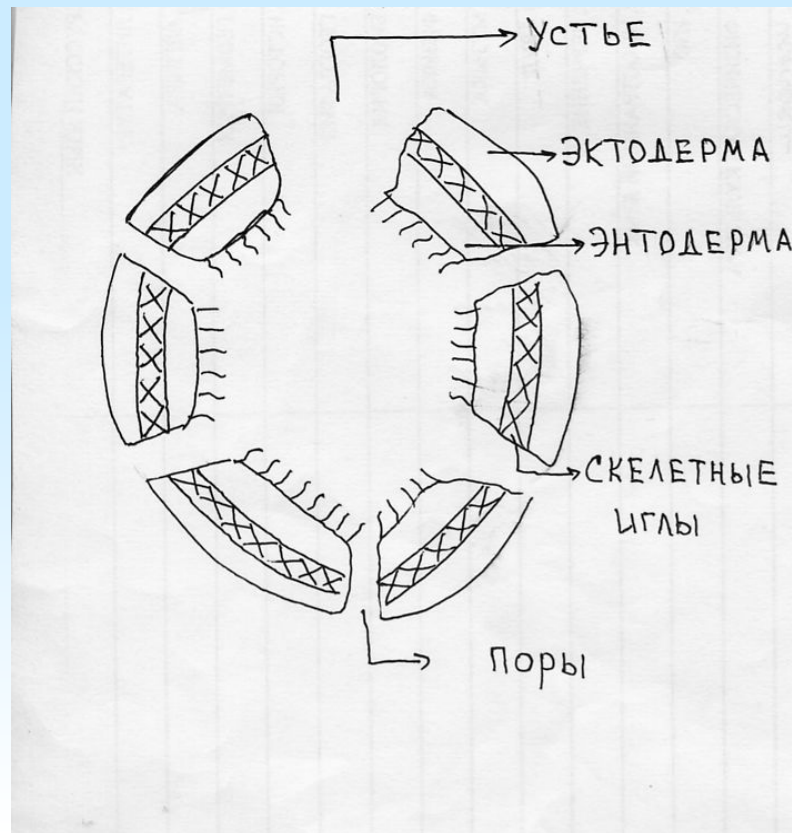 УСТЬЕ
ЭКТОДЕРМА
ЭНТОДЕРМА
СКЕЛЕТНЫЕ
ИГЛЫ
ПОРЫ